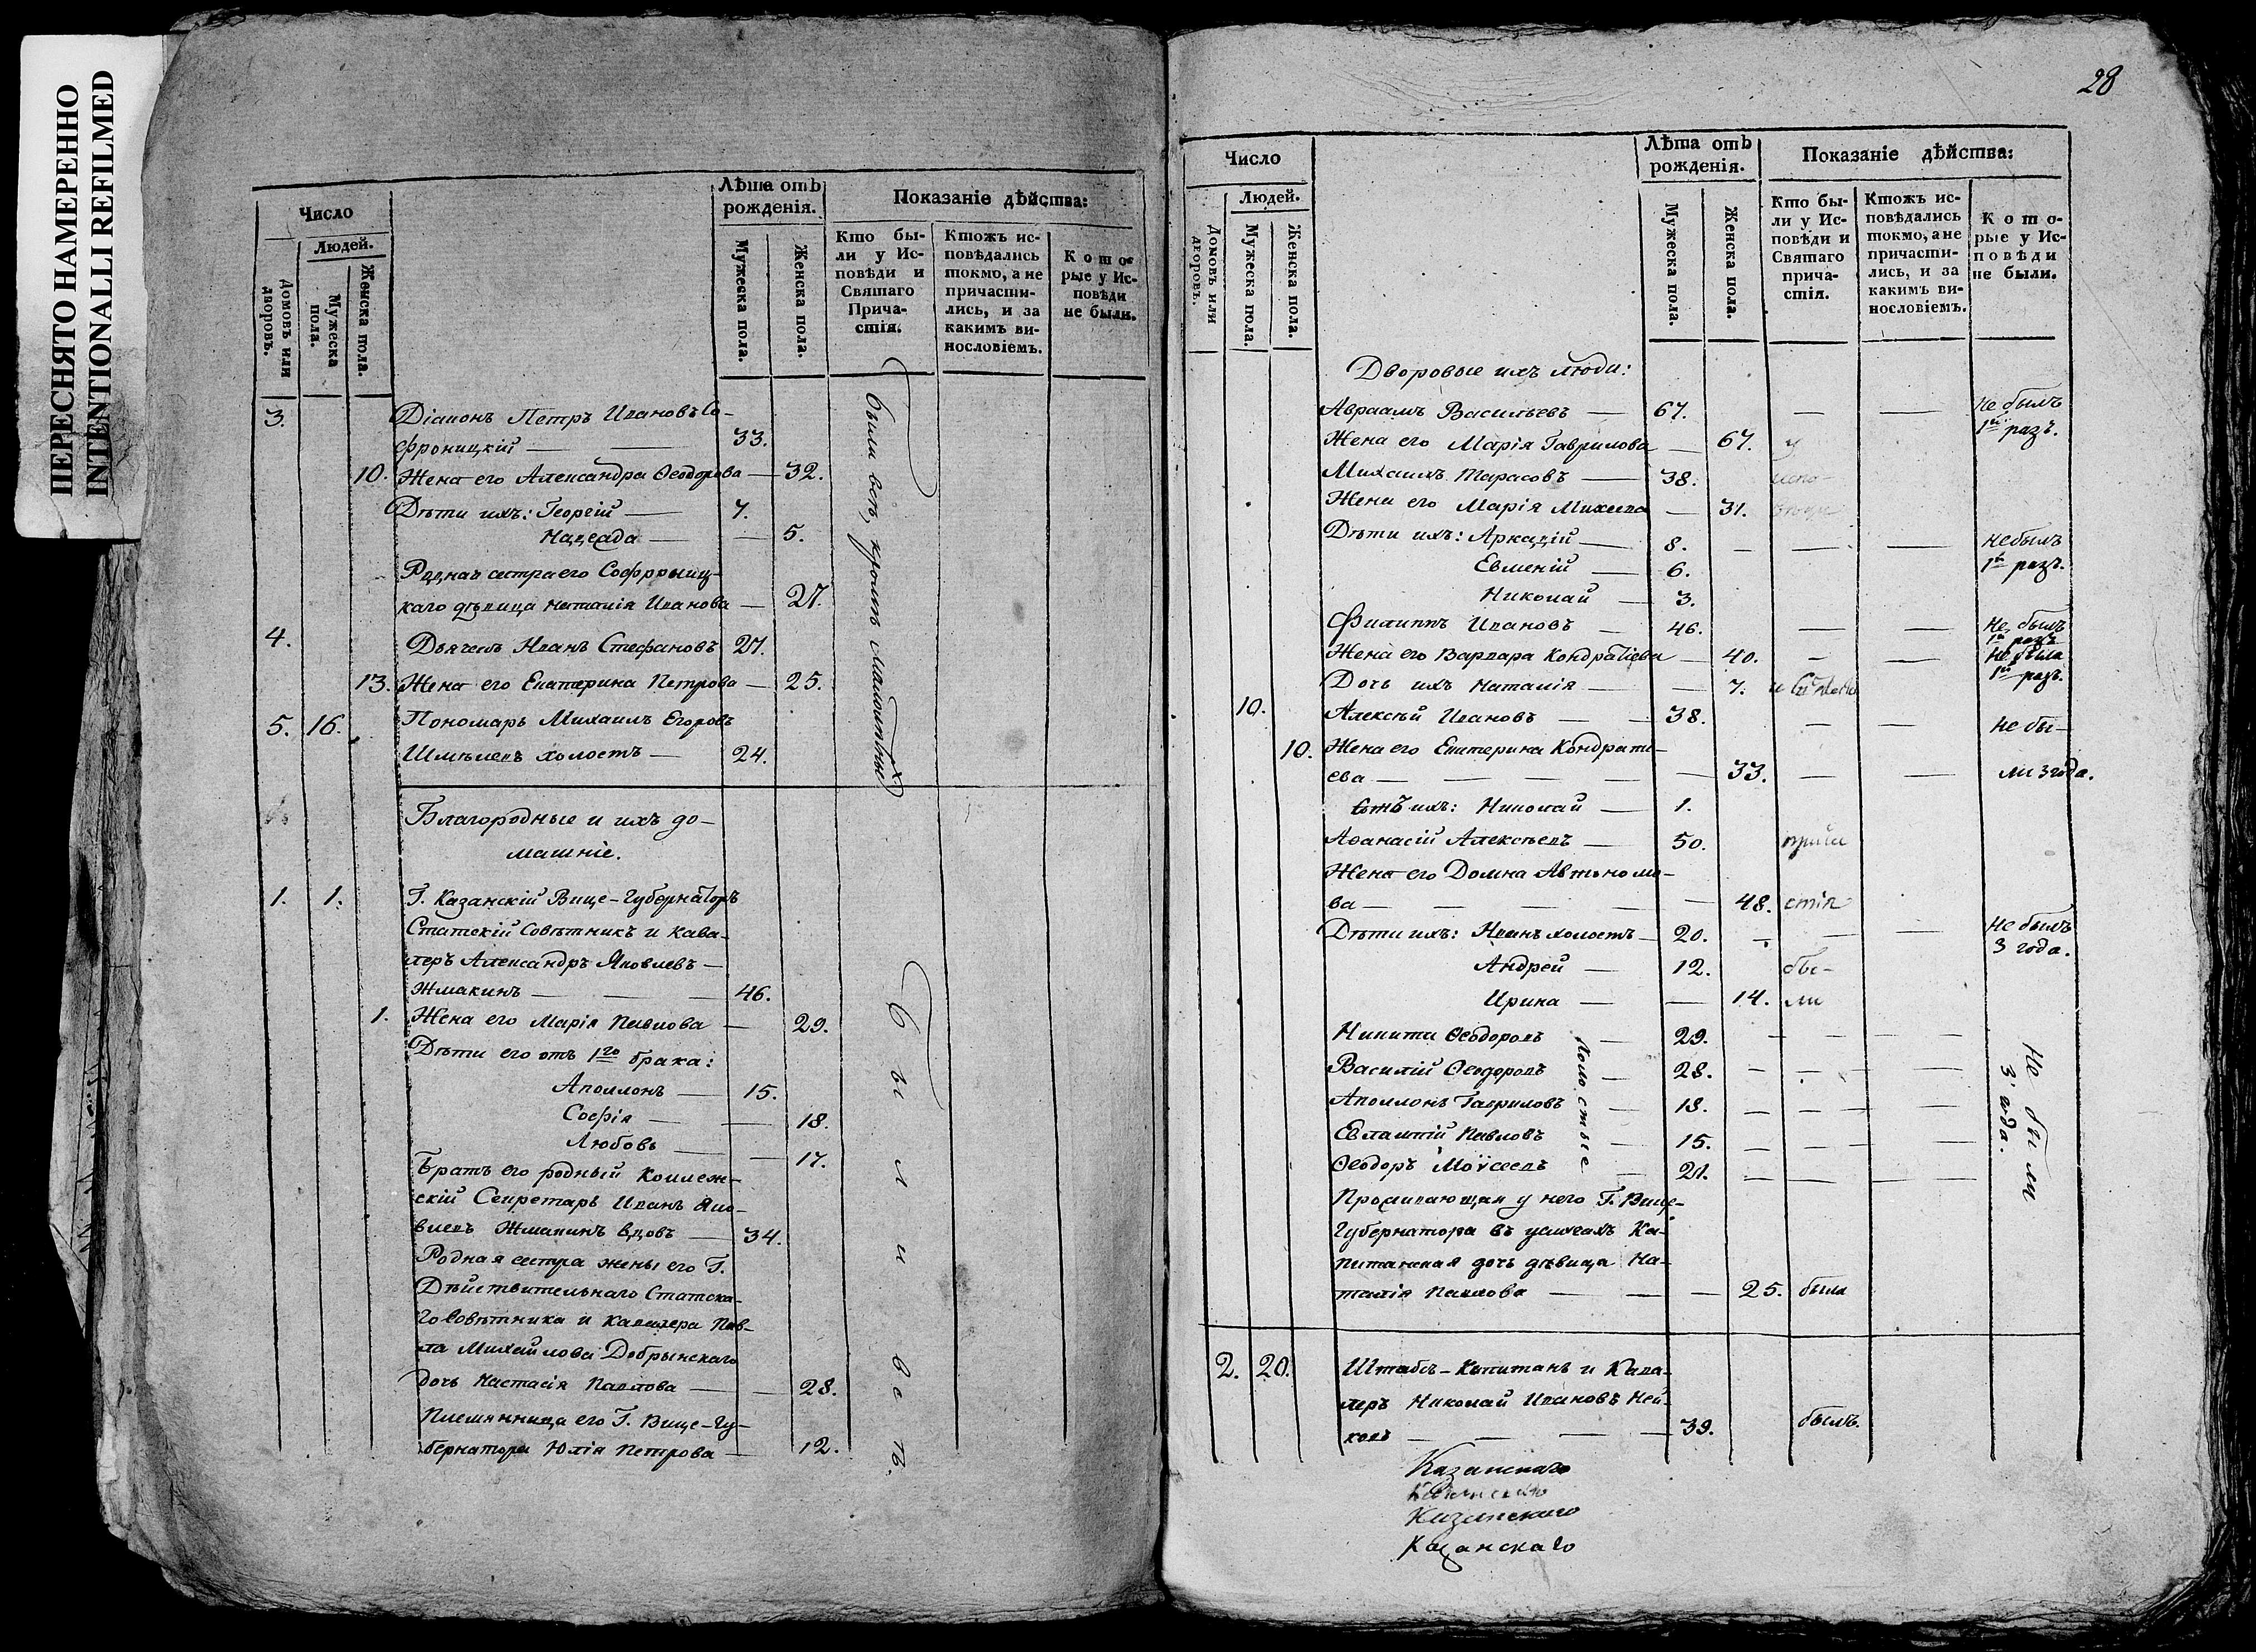 ПЕРЕСНЯТО НАМЕРЕННО
INTENTIONALLI REFILMED
Число
Людей.
Домовъ или дворовъ.
Мужеска пола.
Женска пола.
Лѣта отъ рожденія.
Мужеска пола.
Женска пола.
Показаніе дѣйства:
Кто бы-
ли у Ис-
повѣди и
Святаго
Прича-
стія.
Ктожъ ис-
повѣдались
токмо, а не
причасти-
лись, и за
какимъ ви-
нословіемъ.
Кото-
рые у Ис-
повѣди
не были.
3. Діаконъ Петръ Ивановъ Со-
фроницкій — 33.
10. Жена его Александра Ѳеодорова — 32.
Дѣти ихъ: Георгій — 7.
Надежда — 5.
Родная сестра его Софрониц-
каго дѣвица Наталія Иванова — 27.
4. Дьячекъ Иванъ Стефановъ 27.
13. Жена его Екатерина Петрова — 25.
5. 16. Пономарь Михаилъ Егоровъ
Шмелевъ холостъ — 24.
были всѣ, кромѣ малолѣтныхъ
Благородные и ихъ до-
машніе.
1. 1. Г. Казанскій Вице-Губернаторъ
Статскій Совѣтникъ и Кава-
леръ Александръ Яковлевъ —
Жмакинъ — 46.
1. Жена его Марія Павлова — 29.
Дѣти его отъ 1го брака:
Аполлонъ — 15.
Софія — 18.
Любовь — 17.
Братъ его родный Коллеж-
скій Секретарь Иванъ Яко-
влевъ Жмакинъ вдовъ — 34.
Родная сестра жены его Г.
Дѣйствительнаго Статска-
го Совѣтника и Кавалера Пав-
ла Михайлова Добрынскаго
дочь Настасія Павлова — 28.
Племянница его Г. Вице-Гу-
бернатора Юлія Петрова — 12.
Были всѣ.
28
Число
Людей.
Домовъ или дворовъ.
Мужеска пола.
Женска пола.
Лѣта отъ
рожденія.
Мужеска пола.
Женска пола.
Показаніе дѣйства:
Кто бы-
ли у Ис-
повѣди и
Святаго
прича-
стія.
Ктожъ ис-
повѣдались
токмо, а не
причасти-
лись, и за
какимъ ви-
нословіемъ.
Кото-
рые у Ис-
повѣди
не были.
Дворовые ихъ люди:
Авраамъ Васильевъ — 67. — — Не былъ
1й разъ.
Жена его Марія Гаврилова — 67. у
Михаилъ Тарасовъ — 38. испо-
Жена его Марія Михеева — 31.
Дѣти ихъ: Аркадій — 8. — — — не былъ
1й разъ.
Евменій — 6.
Николай — 3.
Филиппъ Ивановъ — 46. — — Не былъ
1й разъ
Жена его Варвара Кондратіева — 40. — — Не была
1й разъ.
Дочь ихъ Наталія — 7.
10. Алексѣй Ивановъ — 38. — — Не бы-
10. Жена его Екатерина Кондрати-
ева — 33. — — ли 3 года.
Сынъ ихъ: Николай — 1.
Аѳанасій Алексѣевъ — 50. прича
Жена его Домна Автоно мо-
ва — 48. стія
Дѣти ихъ: Иванъ холостъ — 20. — — — Не былъ
3 года.
Андрей — 12. бы-
Ирина — 14. ли
Никита Ѳеодоровъ — 29. — — —
Василій Ѳеодоровъ — 28. — — —
Аполлонъ Гавриловъ — 18. — — —
Евлампій Павловъ — 15. — — —
Ѳеодоръ Моѵсеевъ — 21. — — —
холостые
Не были
3 года.
Проживающая у него Г. Вице-
Губернатора въ услугахъ Ка-
питанская дочь дѣвица На-
талія Павлова — 25. была
2. 20. Штабсъ-Капитанъ и Кава-
леръ Николай Ивановъ Ней-
ковъ — 39. былъ.
Казанскаго
Казанскаго
Казанскаго
Казанскаго